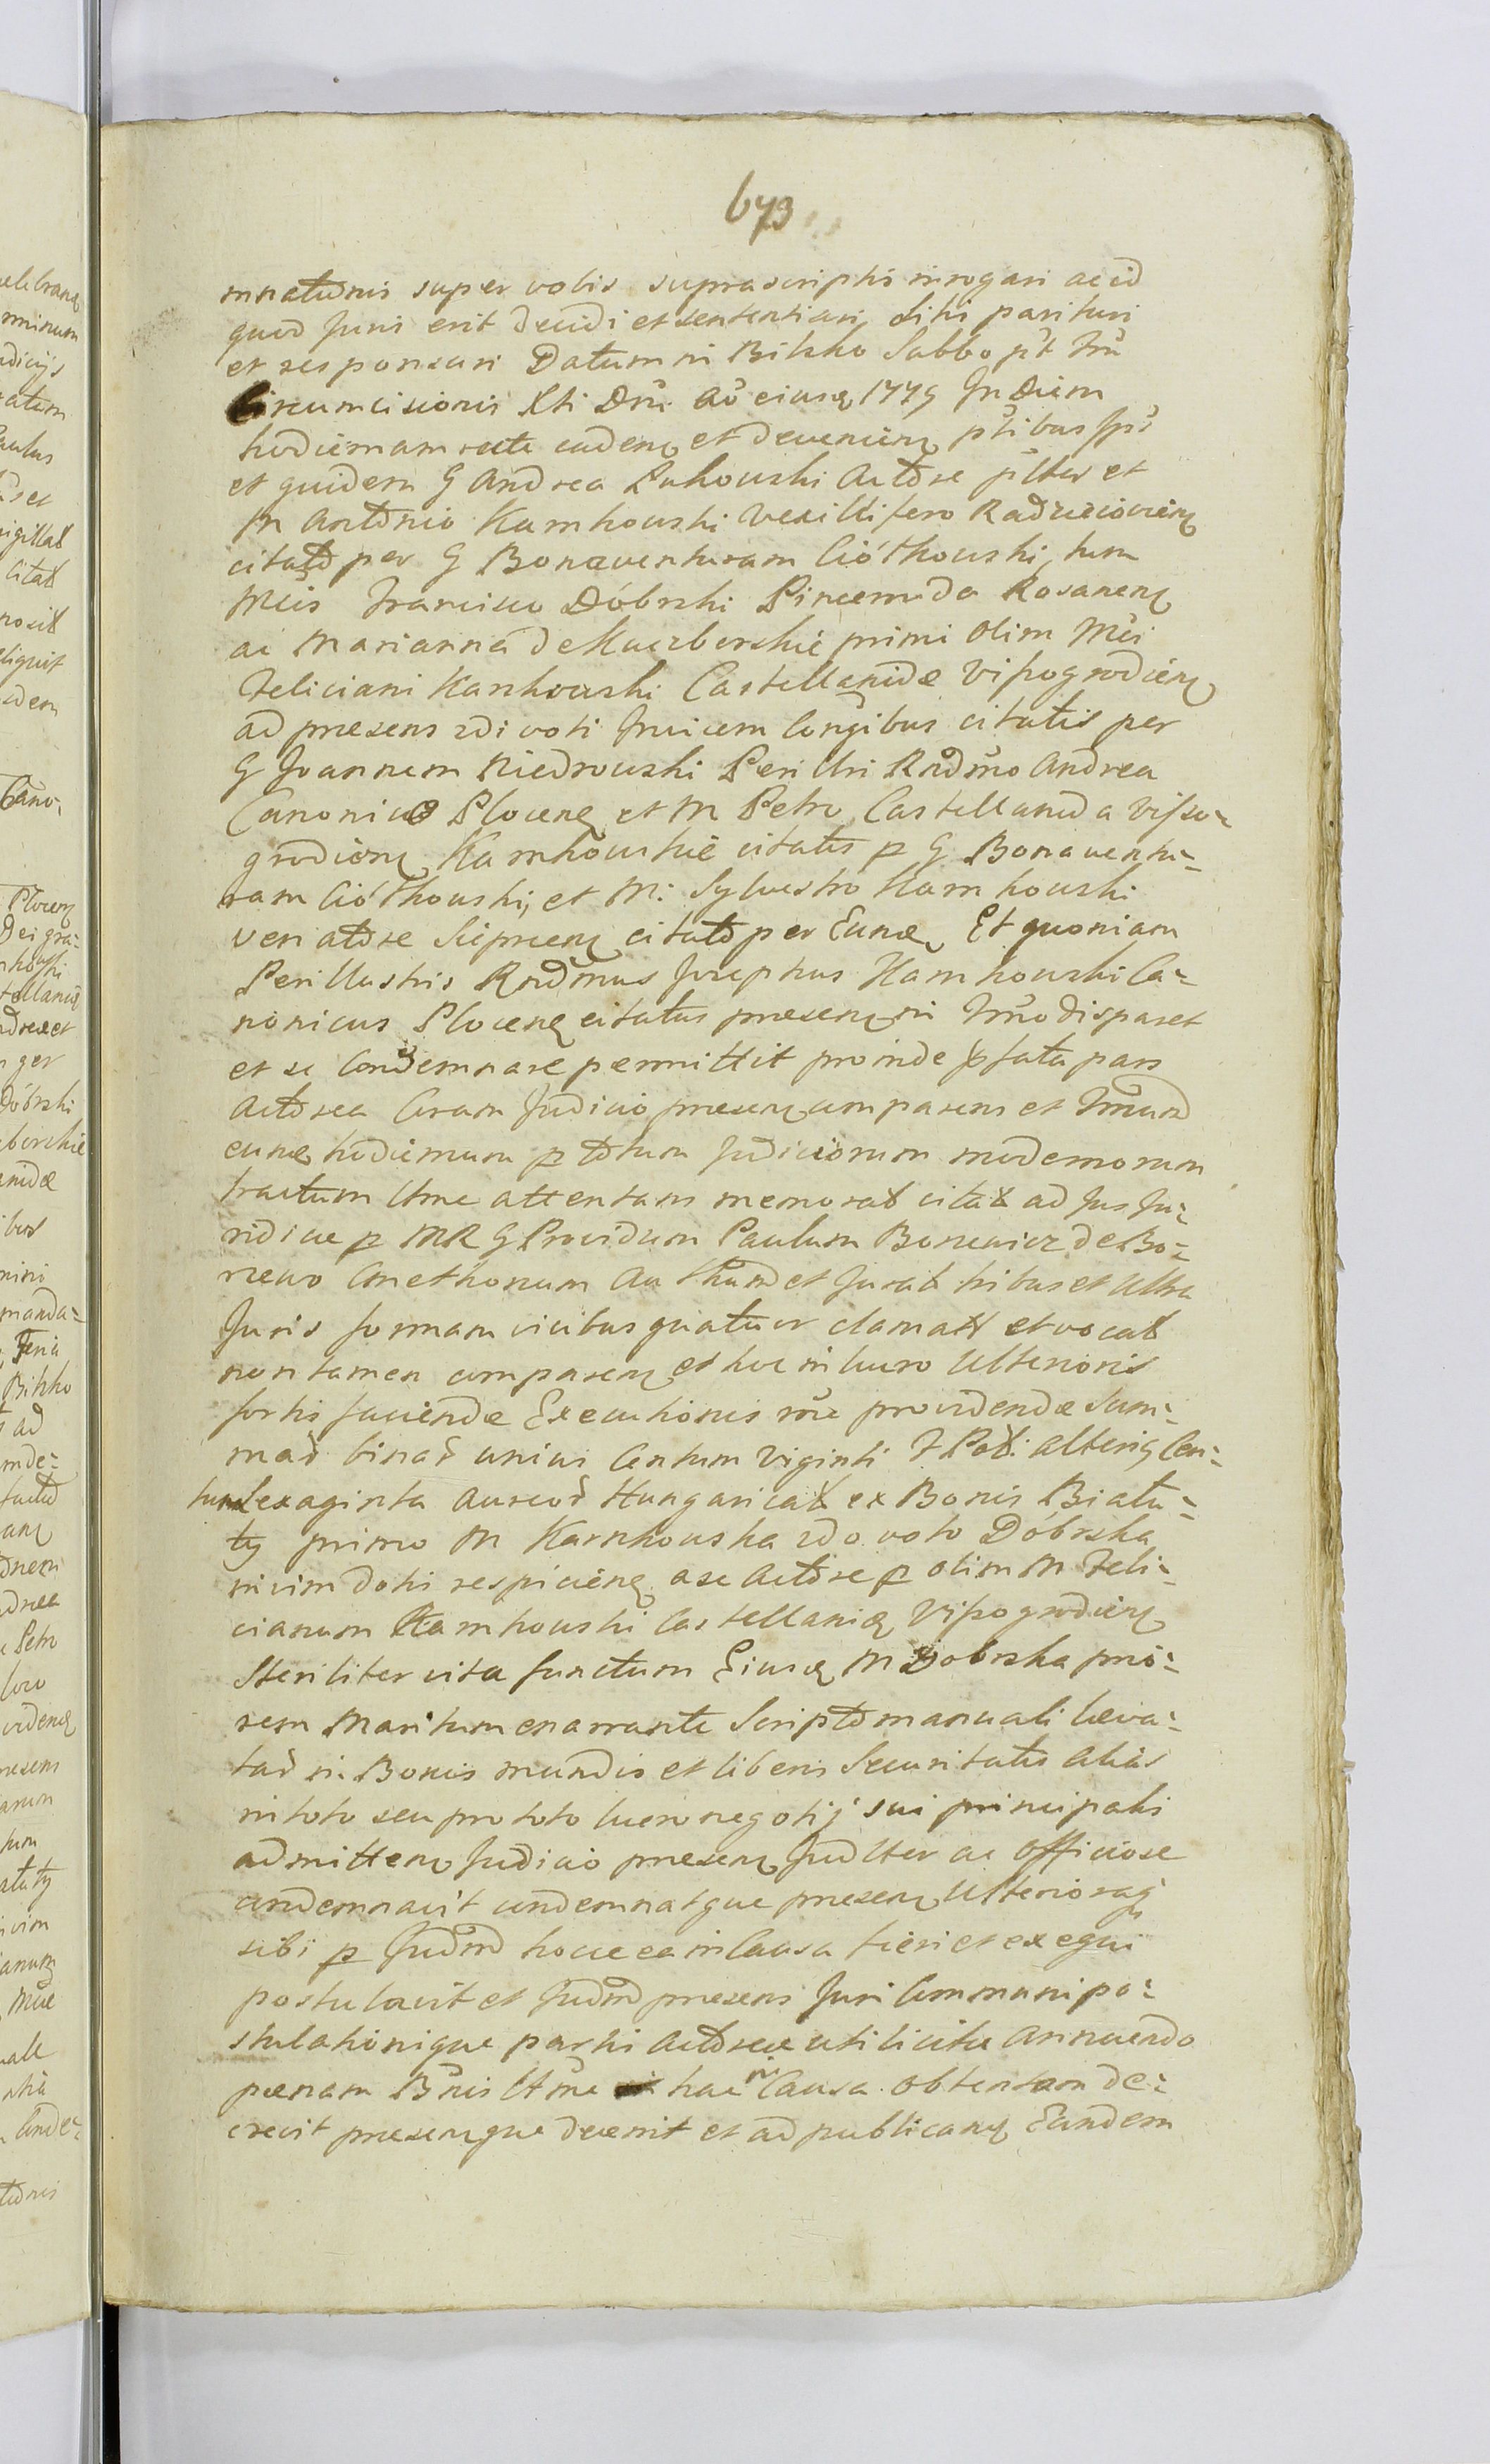 673
mnationis super vobis suprascriptis irrogari ac id
quod Juris erit decidi et sententiari, Sitis parituri
et responsuri Datum in Bilsko Sabbo pt Fm
Circumcisionis Xti Dni Ao eiusq 1779 In Diem
hodiernam recte caden et devenien ptibus ips
et quidem G Andrea Lukowski Actore pltter et
M Antonio Karnkowski Vexillifero Radzieiovien
citato per G Bonaventuram Ciółkowski, tum
Mcis Francisco Dóbrski Pincernida Rosanen
ac Marianna de Kuczborskie primi olim Mci
Feliciani Karnkowski Castellanidæ Visogrodien
ad præsens 2di voti Invicem Congibus citatis per
G Joannem Niedrowski Perillri Rndmo Andrea
Canonico Plocen et M Petro Castellanida Visso-
grodien Karnkowskie citatis p G Bonaventu-
ram Ciółkowski, et M: Sylvestro Karnkowski
Venatore Sieprcen citato per Eund, Et quoniam
Perillustris Rndmus Josephus Karnkowski Ca-
nonicus Plocen citatus præsen in Fmo disparet
et se Condemnare permittit proinde pfata pars
Actorea Coram Judicio præsen comparens et Fmum
eund hodiernum p totum Judiciorum modernorum
tractum Ume attentans memorat citat ad Jus Ju-
ridice p MR G Providum Paulum Boncwicz de Bo-
rzewo Cmethonum Authum et Jurat tribus et Ultra
Juris formam vicibus quatuor clamatt et vocat
non tamen comparen et hoc in lucro Ulterioris
fortis faciendæ Executionis rne providendæ Sum-
mar binar unius Centum Viginti F Pol: alterig Cen-
tum Sexaginta Aureor Hungarical ex Bonis Biału-
ty primo M Karnkowska 2do voto Dóbrska
in vim doti respicien a se Actore p olim M Feli-
cianum Karnkowski Castellanid Visogrodien
Steriliter vita functum Eiusd M Dobrska prio-
rem Maritum enarrante Scripto manuali leva-
tar in Bonis mundis et liberis Securitatis alias
in toto seu pro toto lucro negotij sui principalis
admitten Judicio præsen Judtter ac officiose
condemnavit condemnatque præsen Ulteriorag
sibi p Judm hocce ea in Causa fieri et exequi
postulavit et Judm præsens Juri Communi po-
stulationique partis Actoreæ uti licitæ annuendo
pænam Bnis Ume hac in Causa obtentam de-
crevit præsenque decernit et ad publicand Eandem